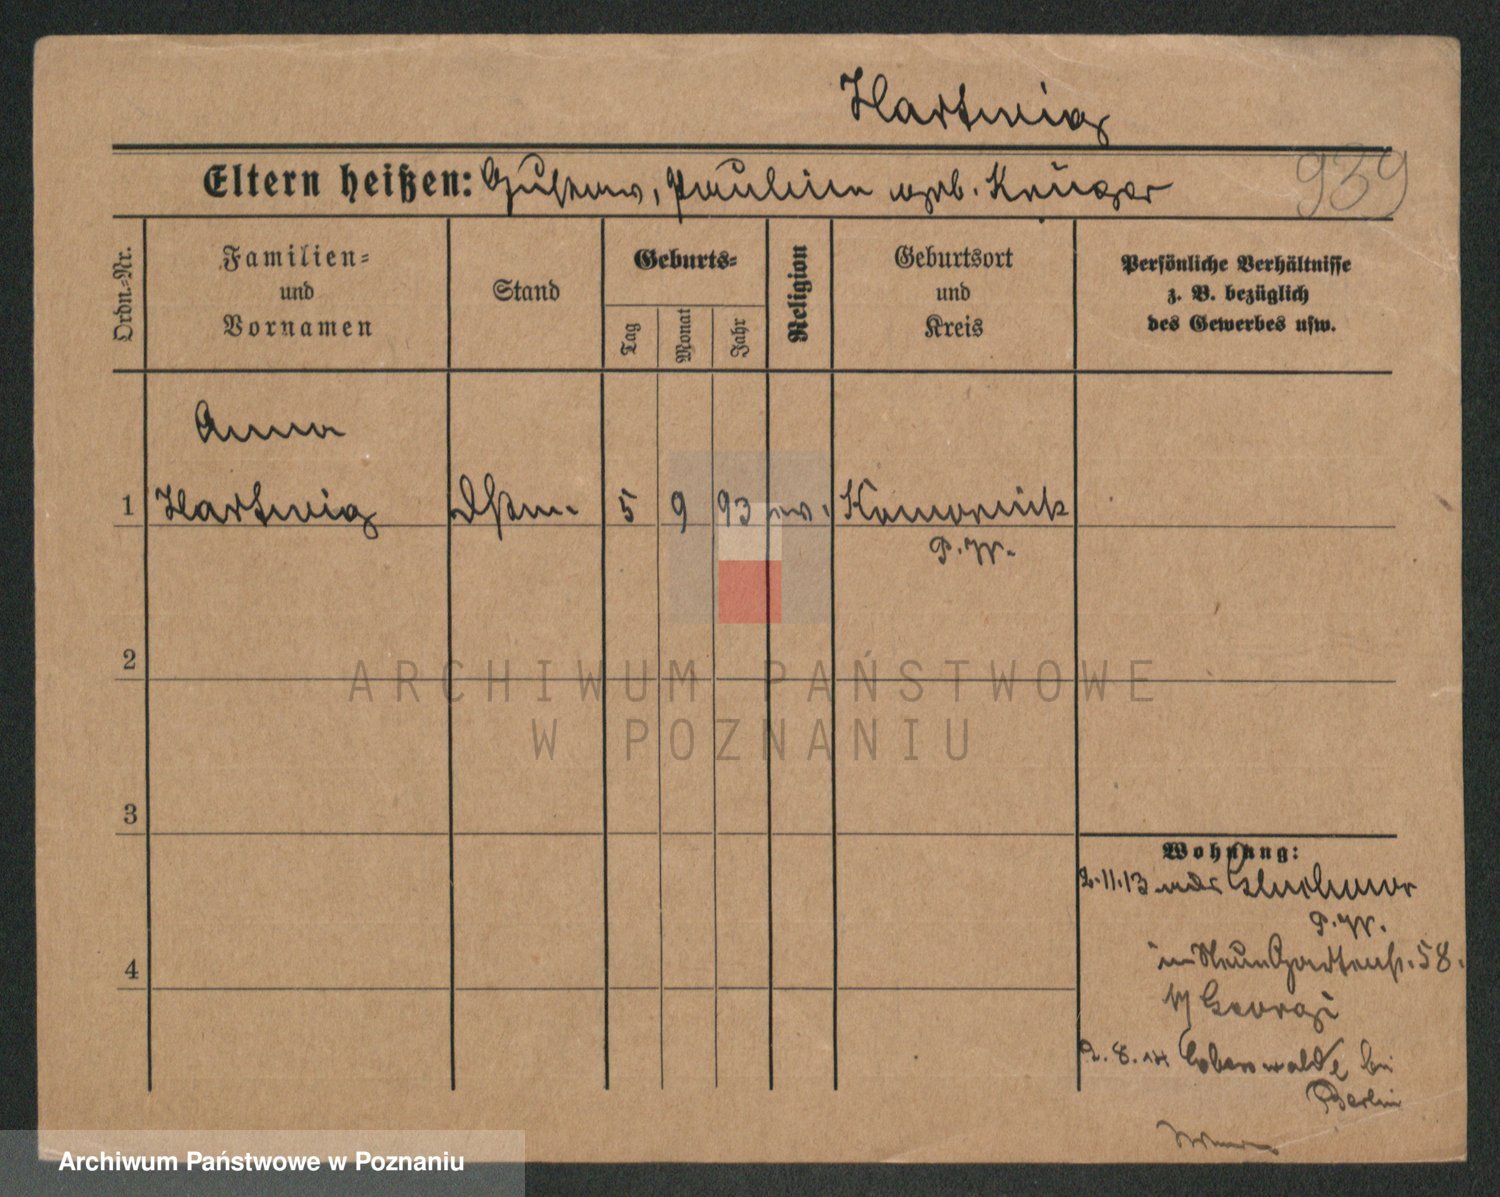 Hartwig
939
Eltern heißen: Gustav, Pauline geb. Krüger
Ordn.-Nr.
Familien-
und
Vornamen
Stand
Geburts-
Tag
Monat
Jahr
Religion
Geburtsort
und
Kreis
Persönliche Verhältnisse
z. B. bezüglich
des Gewerbes usw.
Anna
1 Hartwig 5 9 93 ev. Komornik
P.W.
2
3
4
Wohnung:
2.11.13
P.W.
Gartenstr. 58.
Georgi
2.8.14 Eberswalde bei
Berlin
ARCHIWUM PAŃSTWOWE
W POZNANIU
Archiwum Państwowe w Poznaniu